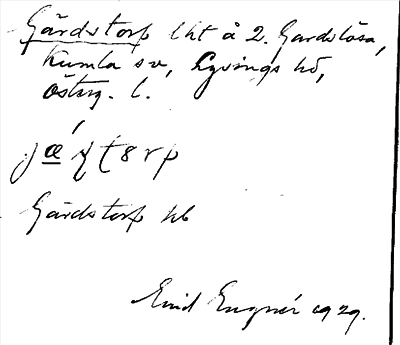 Gärdstorp lht å 2. Gardslösa,
Kumla sn, Lysings hd,
Österg. l.
jǽ ɣ t 8 r p
Gärdstorp hb
Enid Eugnér 1929.